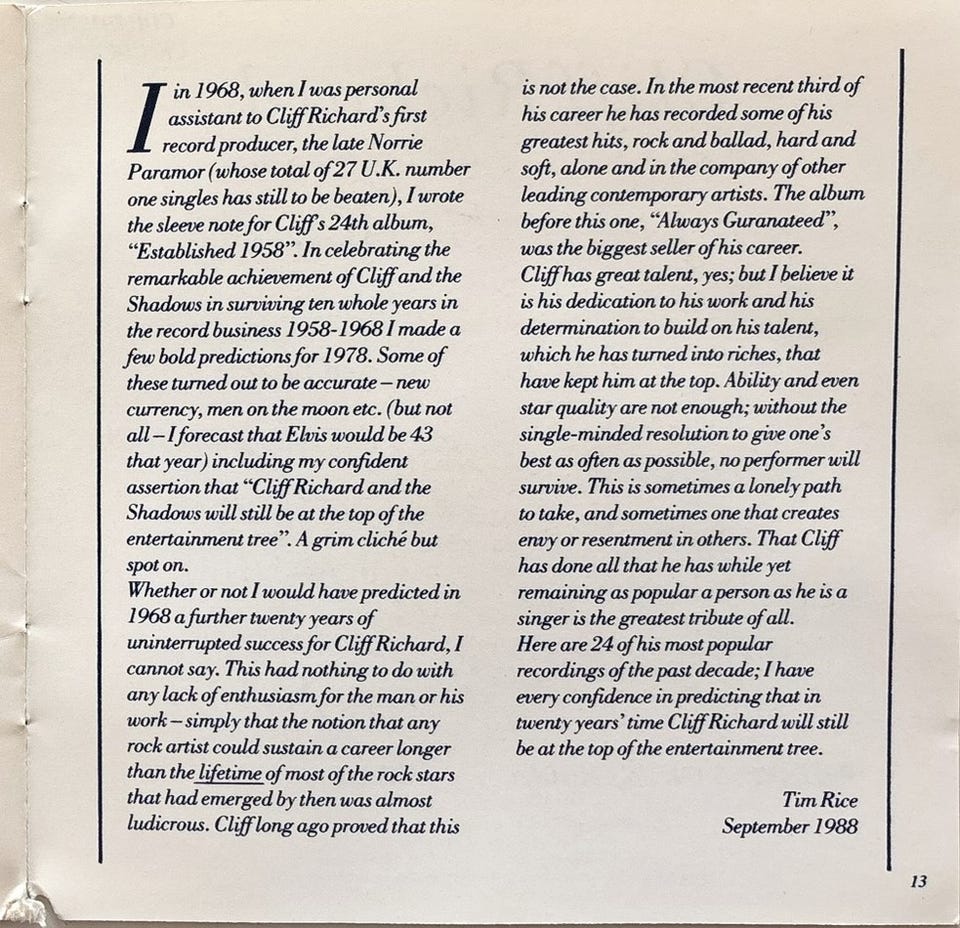 I in 1968, when I was personal
assistant to Cliff Richard's first
record producer, the late Norrie
Paramor (whose total of 27 U.K. number
one singles has still to be beaten), I wrote
the sleeve note for Cliff's 24th album,
"Established 1958". In celebrating the
remarkable achievement of Cliff and the
Shadows in surviving ten whole years in
the record business 1958-1968 I made a
few bold predictions for 1978. Some of
these turned out to be accurate – new
currency, men on the moon etc. (but not
all – I forecast that Elvis would be 43
that year) including my confident
assertion that "Cliff Richard and the
Shadows will still be at the top of the
entertainment tree". A grim cliché but
spot on.
Whether or not I would have predicted in
1968 a further twenty years of
uninterrupted success for Cliff Richard, I
cannot say. This had nothing to do with
any lack of enthusiasm for the man or his
work – simply that the notion that any
rock artist could sustain a career longer
than the lifetime of most of the rock stars
that had emerged by then was almost
ludicrous. Cliff long ago proved that this
is not the case. In the most recent third of
his career he has recorded some of his
greatest hits, rock and ballad, hard and
soft, alone and in the company of other
leading contemporary artists. The album
before this one, "Always Guranateed",
was the biggest seller of his career.
Cliff has great talent, yes; but I believe it
is his dedication to his work and his
determination to build on his talent,
which he has turned into riches, that
have kept him at the top. Ability and even
star quality are not enough; without the
single-minded resolution to give one's
best as often as possible, no performer will
survive. This is sometimes a lonely path
to take, and sometimes one that creates
envy or resentment in others. That Cliff
has done all that he has while yet
remaining as popular a person as he is a
singer is the greatest tribute of all.
Here are 24 of his most popular
recordings of the past decade; I have
every confidence in predicting that in
twenty years' time Cliff Richard will still
be at the top of the entertainment tree.
Tim Rice
September 1988
13